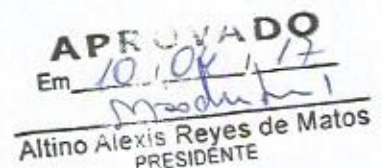 APROVADO
Em 10 / 04 / 17
Altino Alexis Reyes de Matos
PRESIDENTE